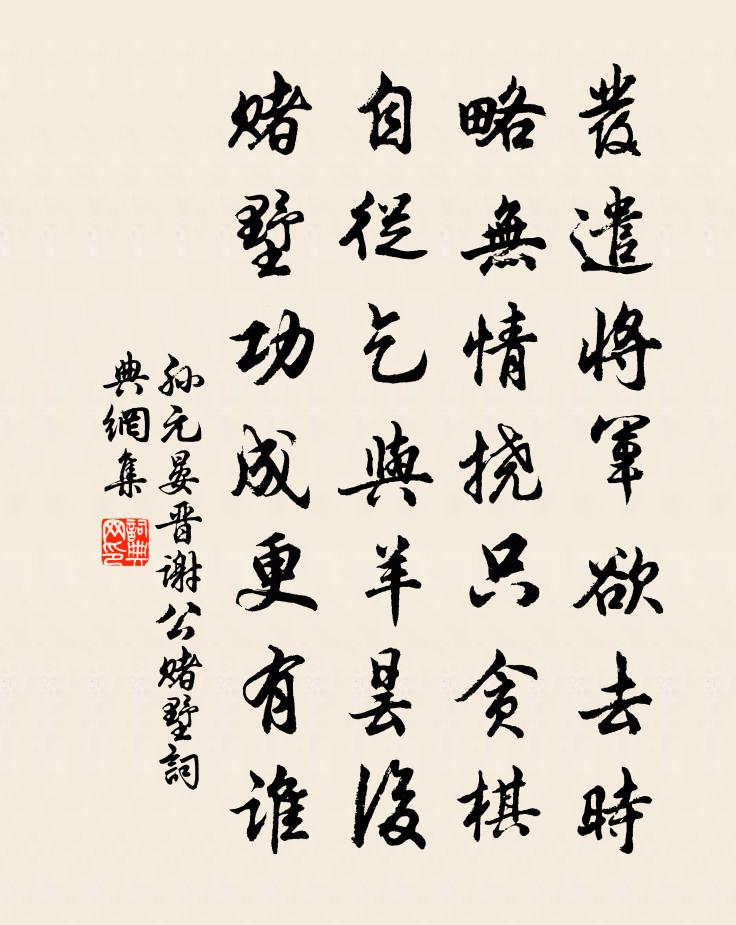 發遣將軍欲去時
略無情撓只貪棋
自從乞與羊曇後
賭墅功成更有誰
孙元晏晋谢公賭墅詞
典網集
詞典
网印